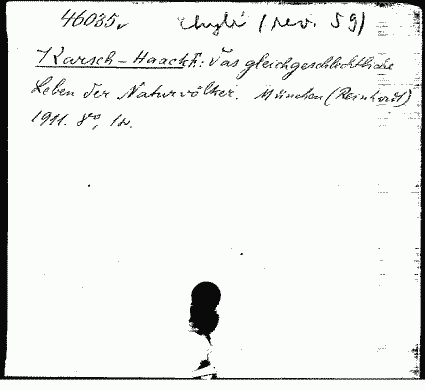 46035. chybí (rev. 59)
Karsch-Haack F.: Das gleichgeschlechtliche
Leben der Naturvölker. München (Reinhardt)
1911. 8°, 1v.